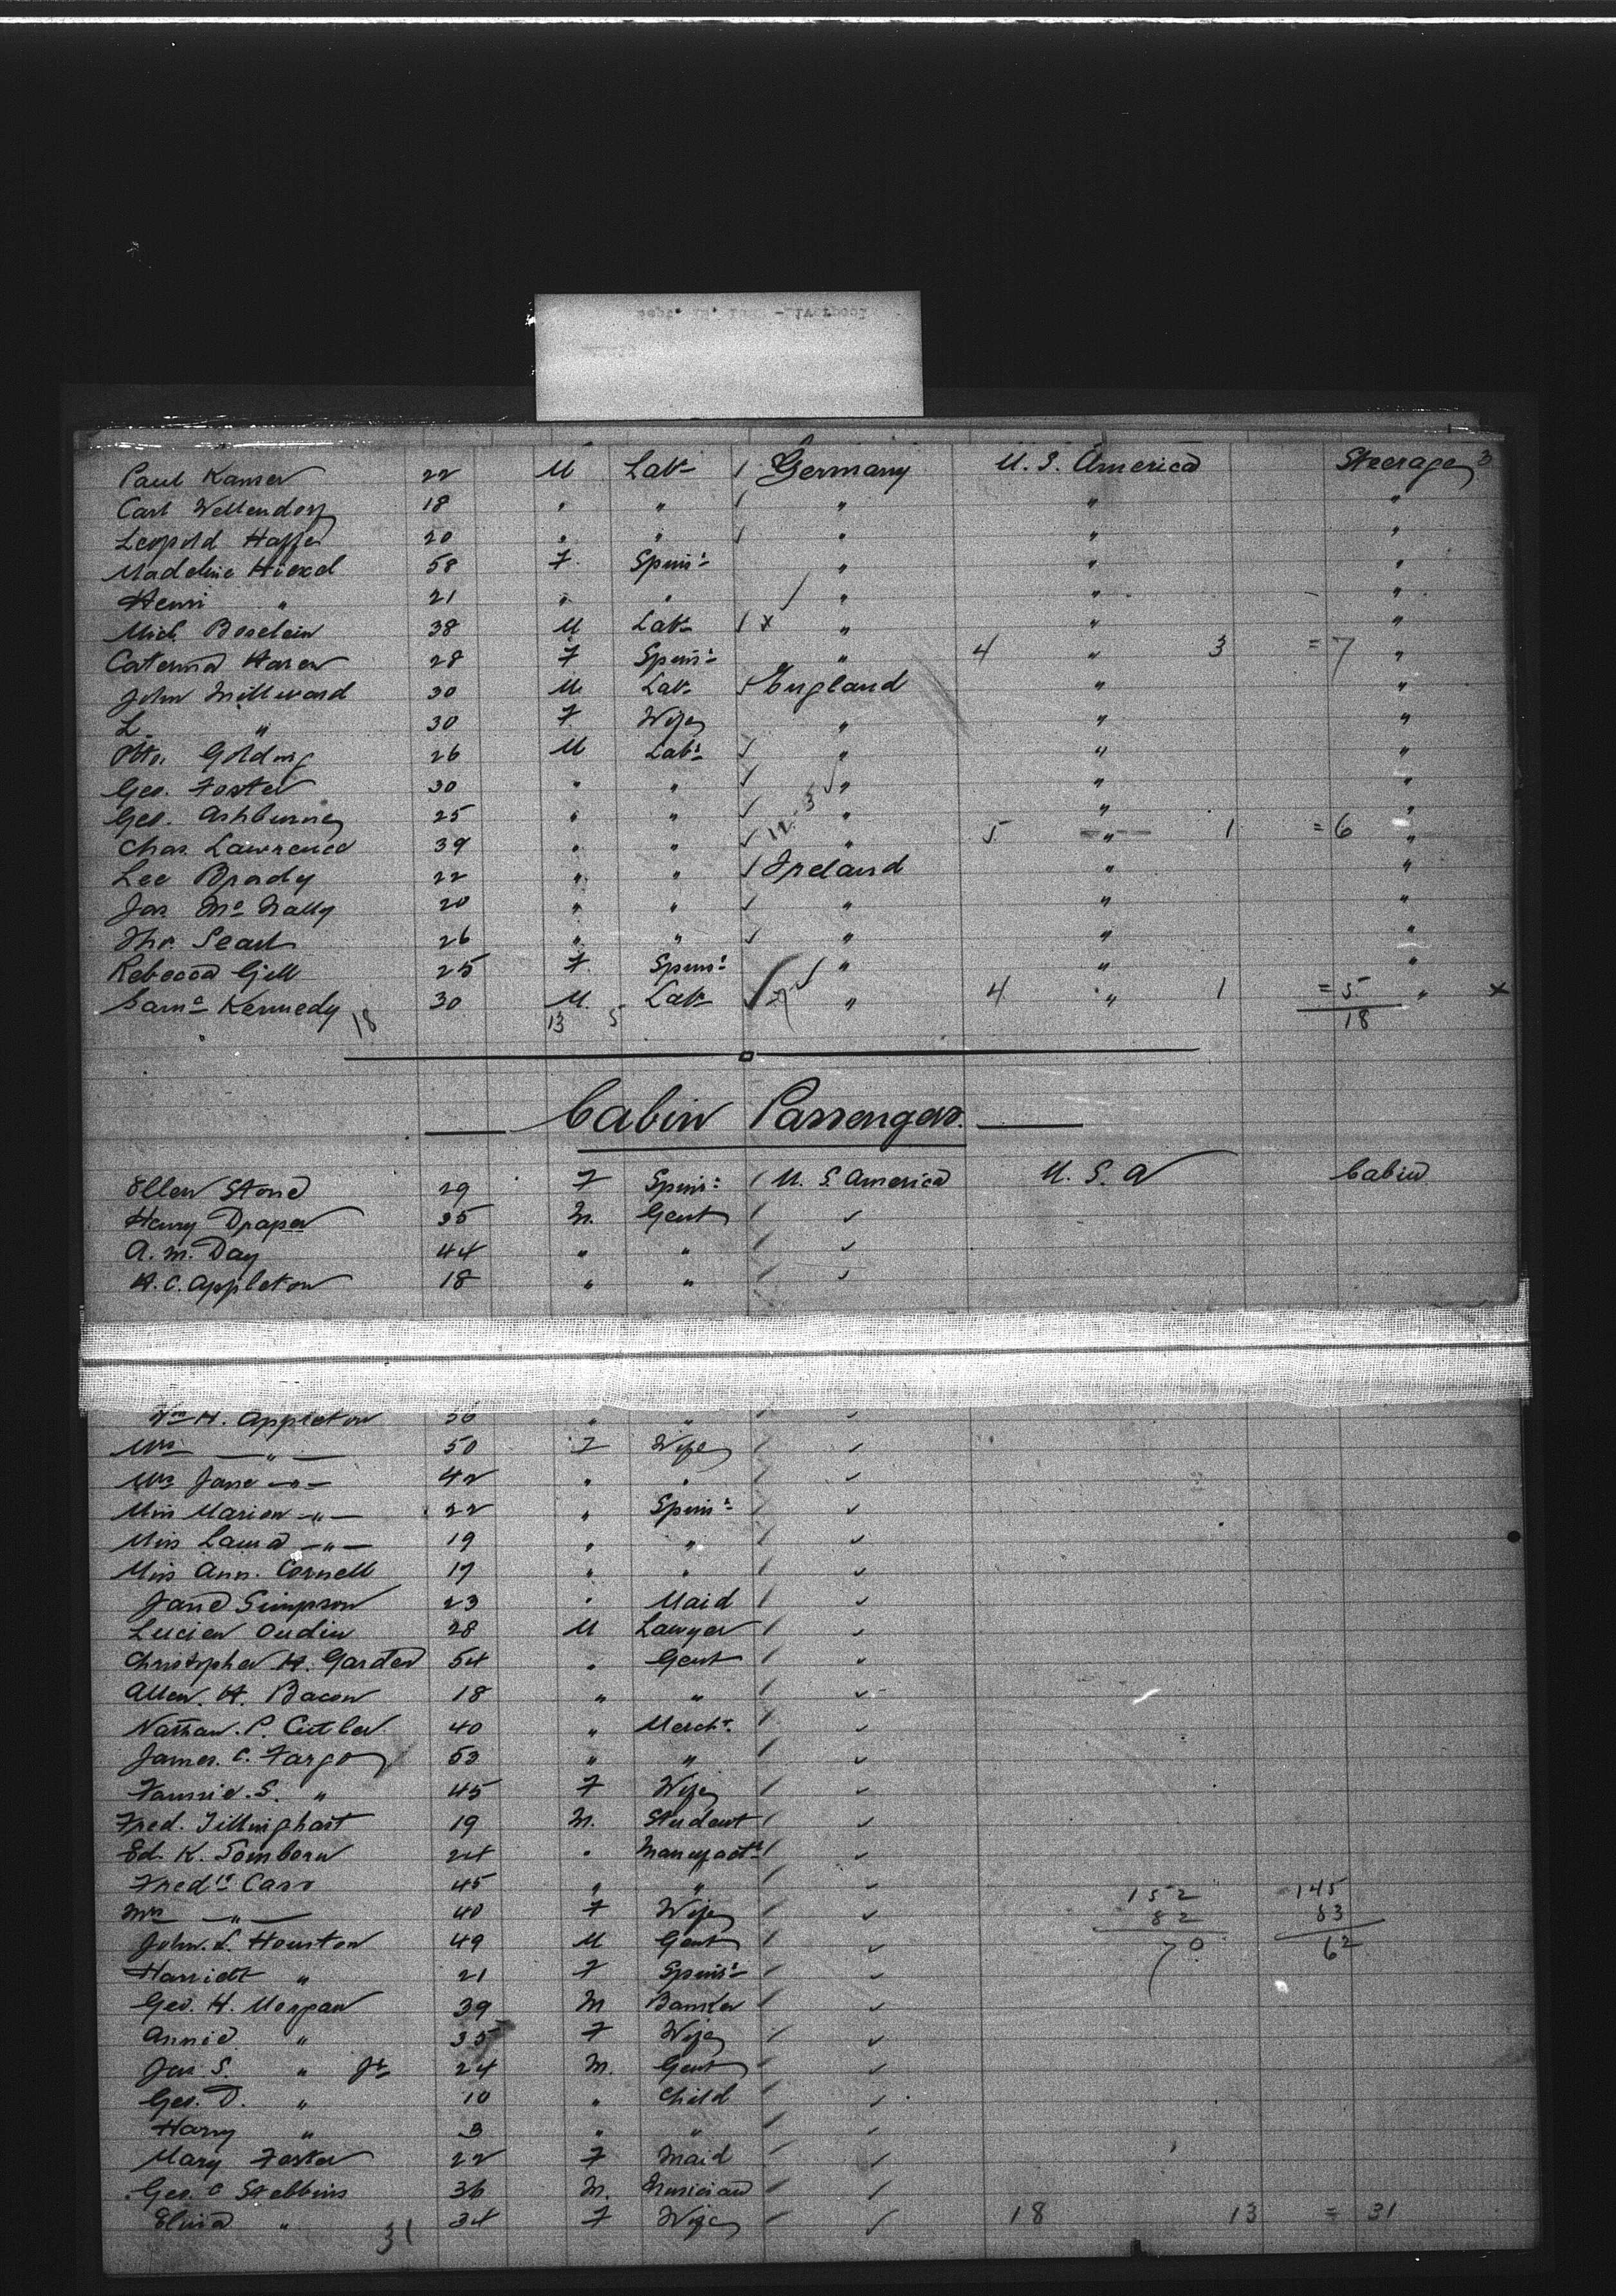 Sept. - Liverpool
Paul Kamer 22 M Labr / Germany U. S. America Steerage 3
Carl Wellendorf 18 " " / " " "
Leopold Haffer 20 " " / " " "
Madeline Hiexel 58 F. Spinsr " " "
Henri " 21 " " / " " "
Mich. Boselein 38 M Labr / x " " "
Caterina Haren 28 F Spinsr " 4 " 3 = 7 "
John Millward 30 M. Labr / England " "
L. " 30 F. Wife " " "
Otto. Golding 26 M Labr / " " "
Geo. Foster 30 " " / " " "
Geo. Ashburney 25 " " / " " "
Chas. Lawrence 39 " " / " 5 " 1 = 6 "
Lee Brady 22 " " / Ireland " "
Jas. Mc Nally 20 " " / " " "
Tho. Searl 26 " " / " " "
Rebecca Gill 25 F. Spinsr / " " "
Saml Kennedy 30 M. Labr / " 4 " 1 = 5 " x
18 13 5 18
Cabin Passengers.
Ellen Stone 29 F Spinsr / U. S. America U. S. A Cabin
Henry Draper 35 M. Gent / ✓
A. M. Day 44 " " / ✓
H. C. Appleton 18 " " / ✓
Wm H. Appleton 56 " " / ✓
Mrs — " — 50 F Wife / ✓
Mrs Jane — " — 42 " " / ✓
Miss Marion — " — 22 " Spinsr / ✓
Miss Laura — " — 19 " " / ✓
Miss Ann. Cornell 17 " " / ✓
Jane Simpson 23 " Maid / ✓
Lucien Oudin 28 M Lawyer / ✓
Christopher H. Garden 54 " Gent / ✓
Allen. H. Bacon 18 " " / ✓
Nathan. P. Cutler 40 " Mercht. / ✓
James. C. Fargo 53 " " / ✓
Fannie. S. " 45 F Wife / ✓
Fred. Tillinghast 19 M. Student / ✓
Ed. K. Somborn 24 " Manufactr / ✓
Fredk Caro 45 " " / ✓ 152 145
Mrs — " — 40 F Wife / ✓ 82 83
John. L. Houston 49 M Gent / ✓ 70 62
Harriett " 21 F Spinsr / ✓
Geo. H. Morgan 39 M Banker / ✓
Annie " 35 F Wife / ✓
Jas. S. " Jr 24 M. Gent / ✓
Geo. D. " 10 " Child / ✓
Harry " 3 " " / ✓
Mary Foster 22 F Maid / ✓
Geo. C Stebbins 36 M. Musician / ✓
Elma " 34 F Wife / ✓ 18 13 = 31
31